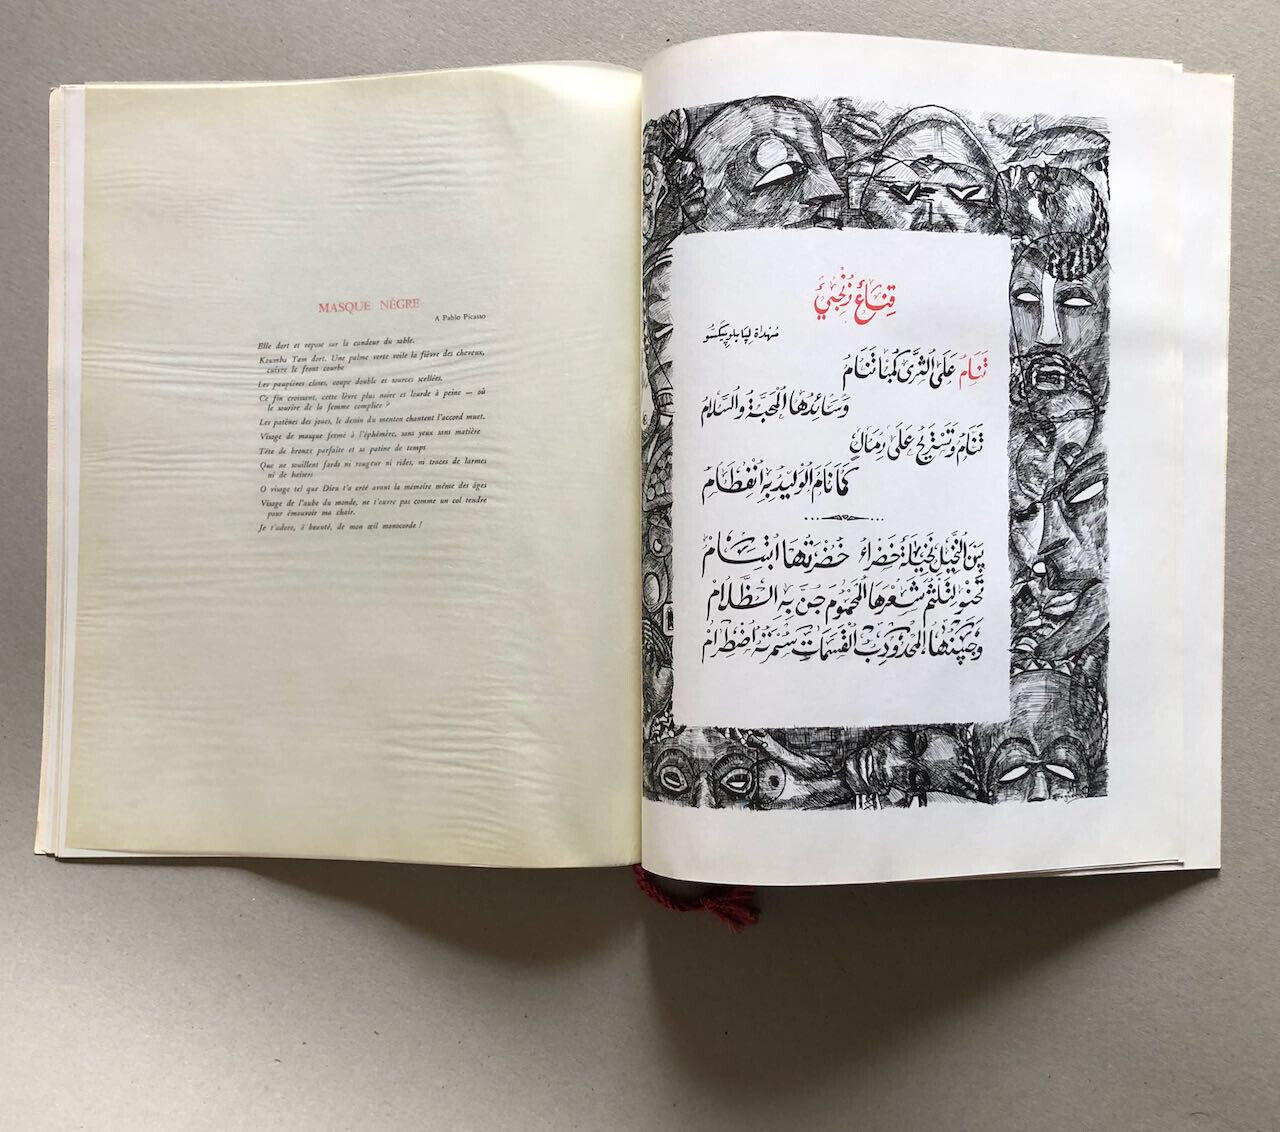 MASQUE NÈGRE
A Pablo Picasso
Elle dort et repose sur la candeur du sable.
Koumba Tam dort. Une palme verte voile la fièvre des cheveux,
cuivre le front courbe
Les paupières closes, coupe double et sources scellées.
Ce fin croissant, cette lèvre plus noire et lourde à peine — où
le sourire de la femme complice ?
Les patènes des joues, le dessin du menton chantent l'accord muet.
Visage de masque fermé à l'éphémère, sans yeux sans matière
Tête de bronze parfaite et sa patine de temps
Que ne souillent fards ni rougeur ni rides, ni traces de larmes
ni de baisers
O visage tel que Dieu t'a créé avant la mémoire même des âges
Visage de l'aube du monde, ne t'ouvre pas comme un col tendre
pour émouvoir ma chair.
Je t'adore, ô beauté, de mon œil monocorde !
قِنَاعٌ زُنْجِيٌّ
مهداة لپابلو پيكسو
تَنَامُ عَلَى الثَّرَى كُمْبَا تَنَامُ
وَسَائِدُهَا الْمَحَبَّةُ وَالسَّلَامُ
تَنَامُ وَتَسْتَرِيحُ عَلَى رِمَالٍ
كَمَا نَامَ الْوَلِيدُ بِهِ انْفِطَامُ
بَيْنَ النَّخِيلِ نَخِيلَةٌ خَضْرَاءُ خُضْرَتُهَا ابْتِسَامْ
تَحْنُو لِتَلْثُمَ شَعْرَهَا الْمَحْمُومَ جُنَّ بِهِ الظَّلَامْ
وَجَبِينُهَا الْمُحْدَوْدَبُ الْقَسَمَاتِ سُمْرَتُهُ اضْطِرَامْ